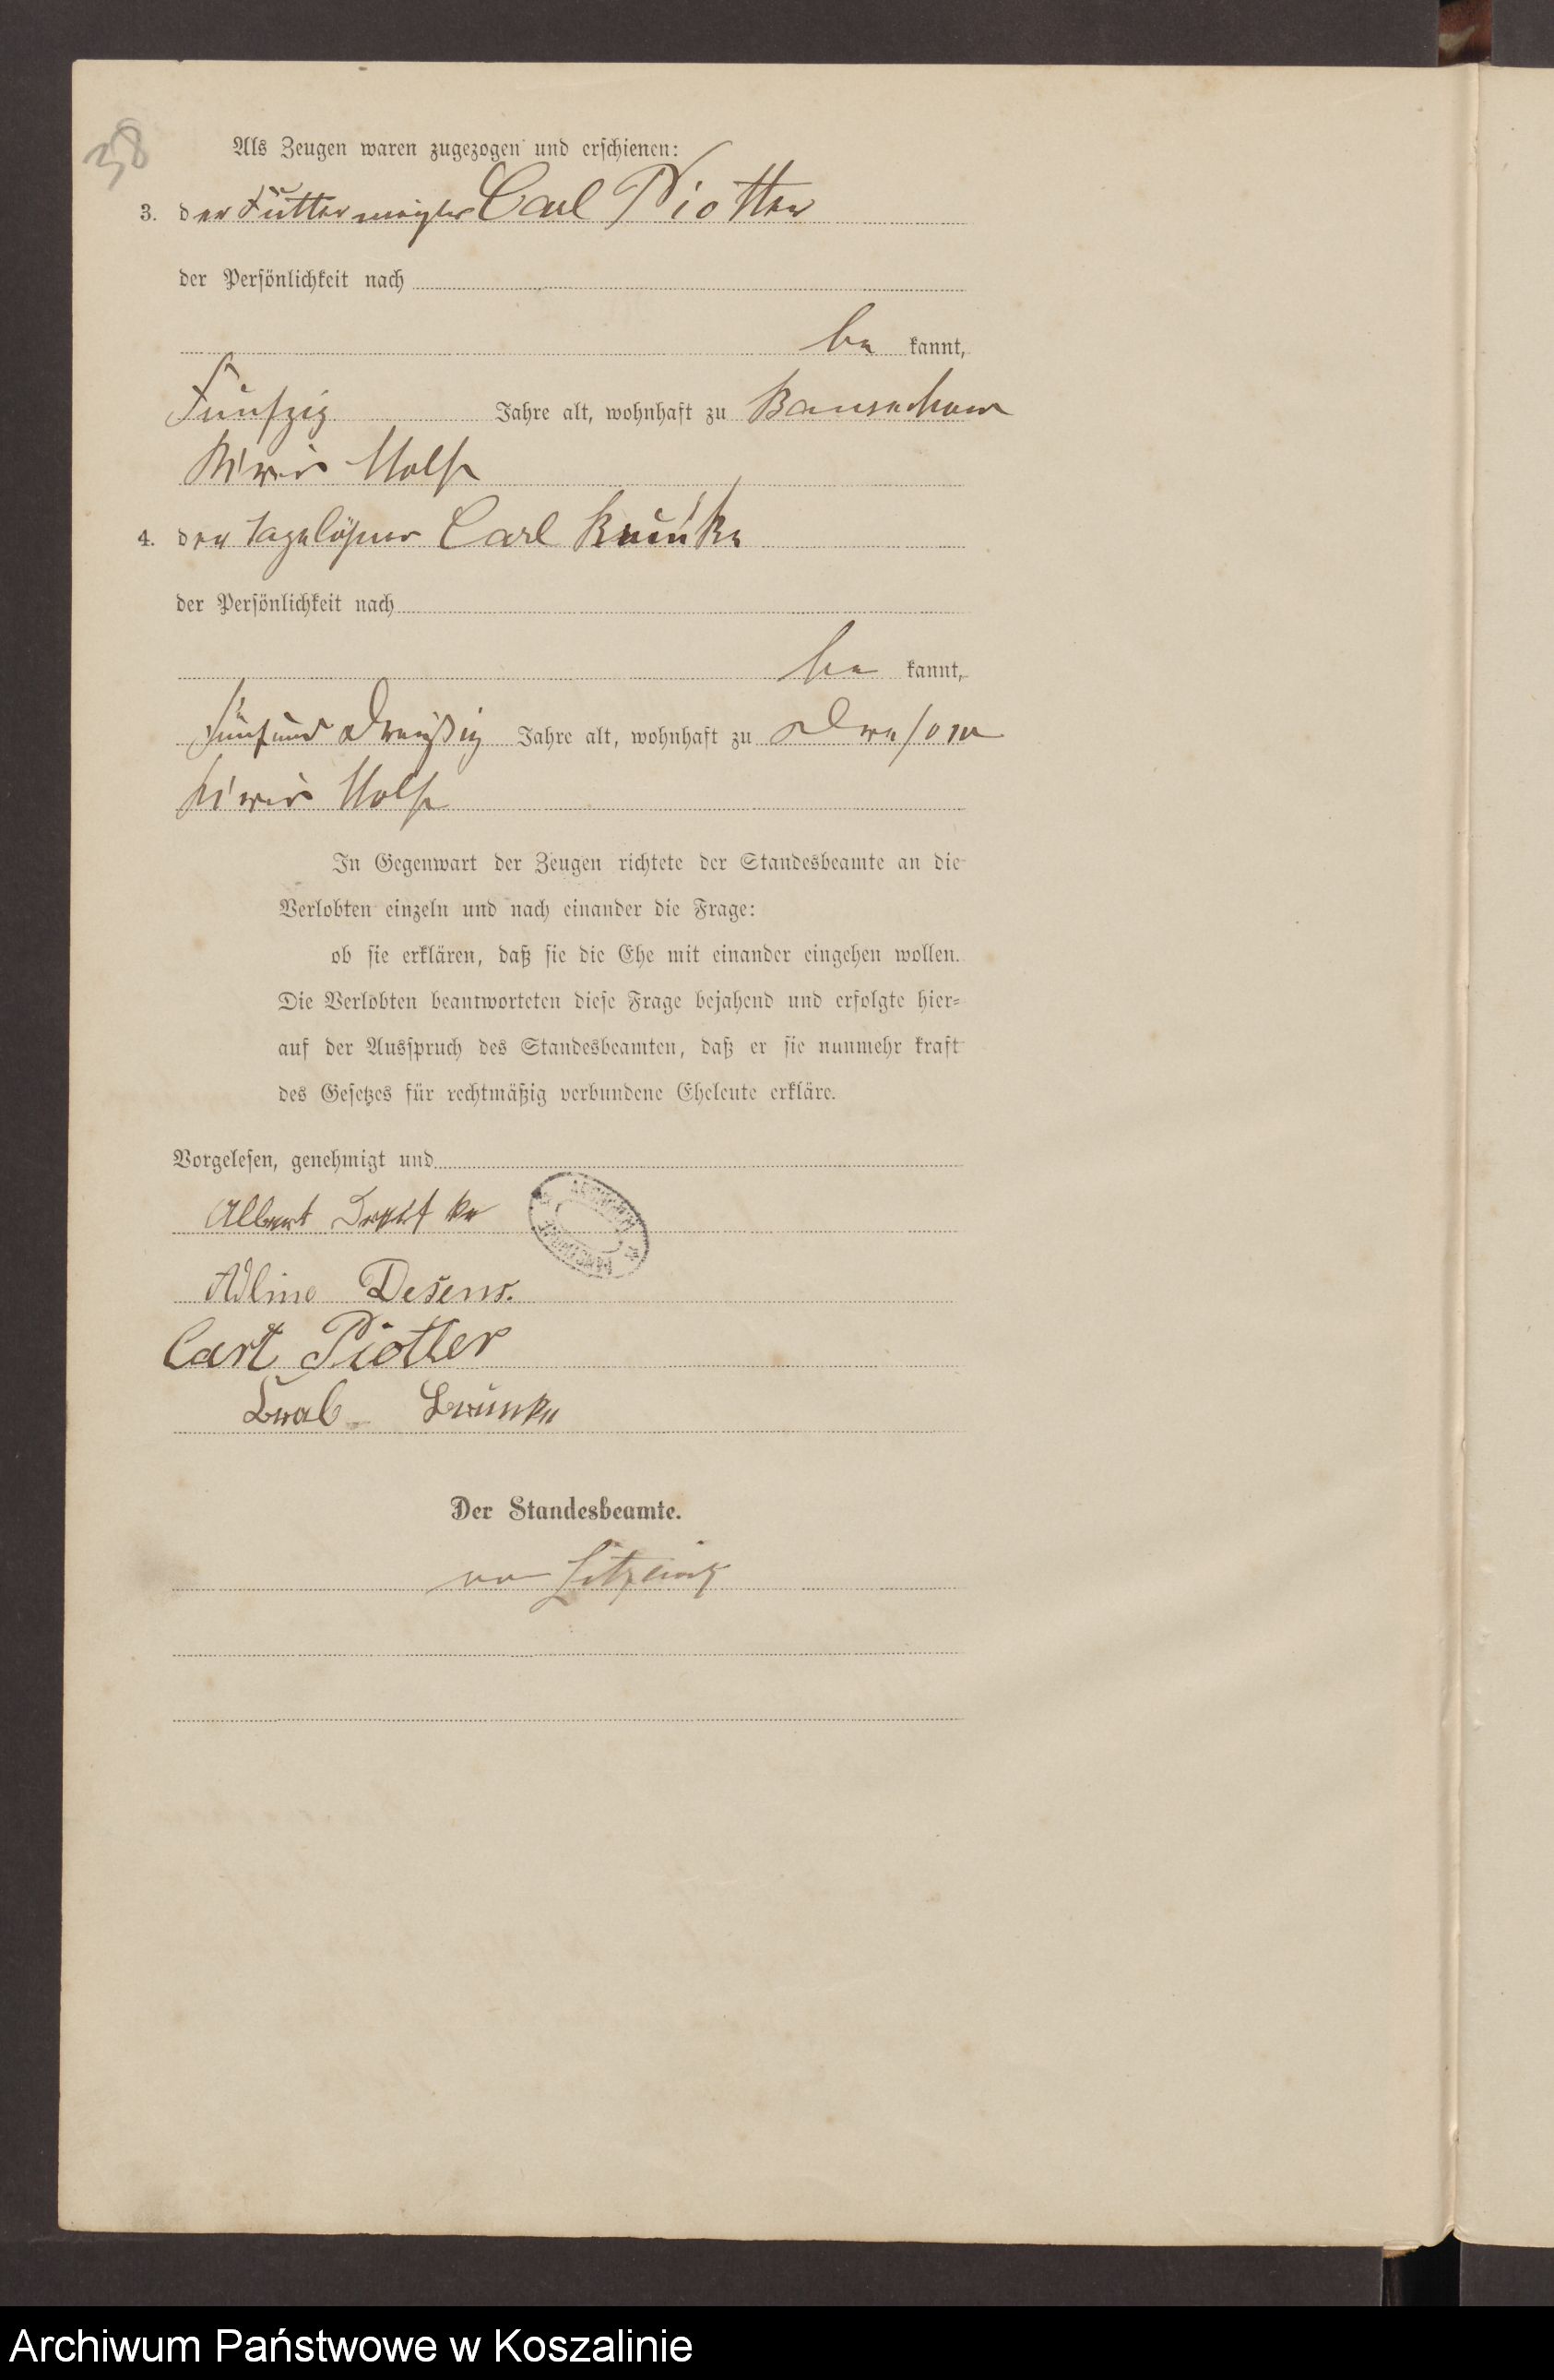 38
Als Zeugen waren zugezogen und erschienen:
3. der Futtermeister Carl Piotter
der Persönlichkeit nach
be kannt,
Fünfzig Jahre alt, wohnhaft zu
Kreis Stolp
4. der Tagelöhner Carl
der Persönlichkeit nach
be kannt,
fünf und dreißig Jahre alt, wohnhaft zu Dresow
Kreis Stolp
In Gegenwart der Zeugen richtete der Standesbeamte an die
Verlobten einzeln und nach einander die Frage:
ob sie erklären, daß sie die Ehe mit einander eingehen wollen.
Die Verlobten beantworteten diese Frage bejahend und erfolgte hier-
auf der Ausspruch des Standesbeamten, daß er sie nunmehr kraft
des Gesetzes für rechtmäßig verbundene Eheleute erkläre.
Vorgelesen, genehmigt und
Albert
Adline Desens.
Carl Piotter
Der Standesbeamte.
von
Archiwum Państwowe w Koszalinie